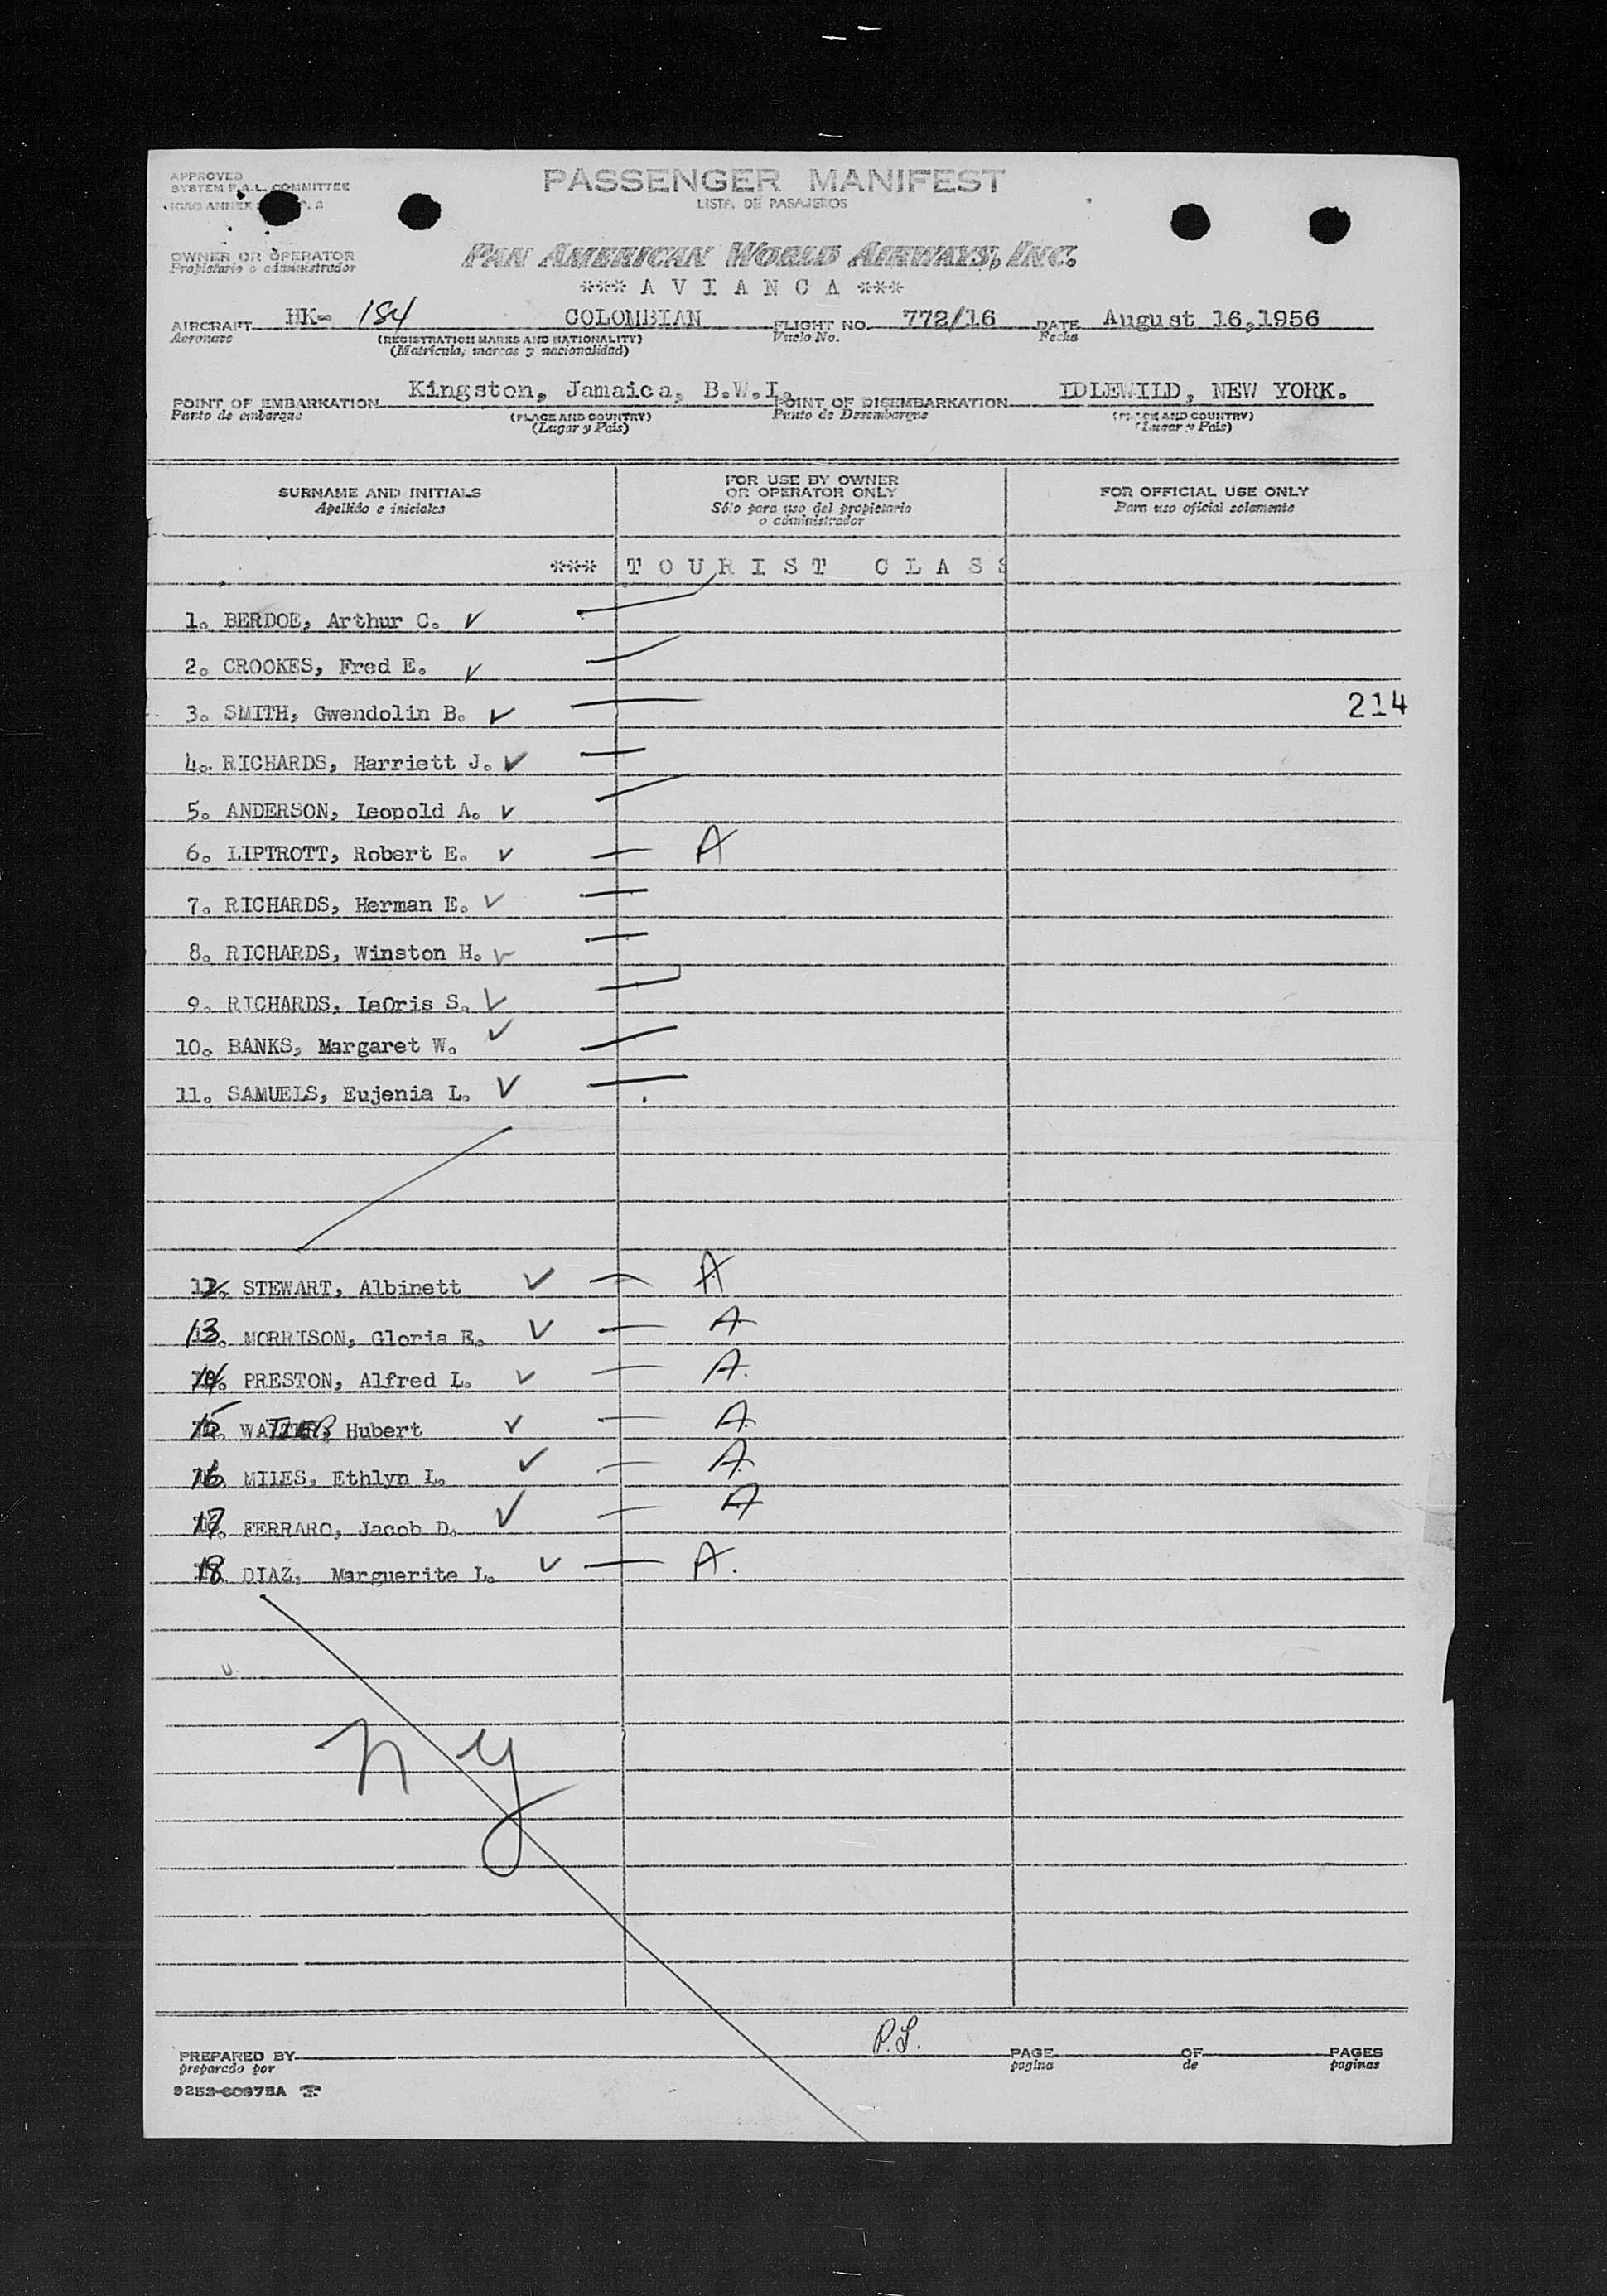 APPROVED
SYSTEM P.A.L. COMMITTEE
ICAO ANNEX
PASSENGER MANIFEST
LISTA DE PASAJEROS
OWNER OR OPERATOR
Propietario o administrador
PAN AMERICAN WORLD AIRWAYS, INC.
*** A V I A N C A ***
AIRCRAFT HK- 184 COLOMBIAN FLIGHT NO. 772/16 DATE August 16,1956
Aeronave (REGISTRATION MARKS AND NATIONALITY) Vuelo No. Fecha
(Matrícula, marcas y nacionalidad)
POINT OF EMBARKATION Kingston, Jamaica, B.W.I. POINT OF DISEMBARKATION IDLEWILD, NEW YORK.
Punto de embarque (PLACE AND COUNTRY) Punto de Desembarque (PLACE AND COUNTRY)
(Lugar y País) (Lugar y País)
SURNAME AND INITIALS
Apellido e iniciales
FOR USE BY OWNER
OR OPERATOR ONLY
Sólo para uso del propietario
o administrador
FOR OFFICIAL USE ONLY
Para uso oficial solamente
*** T O U R I S T C L A S S
1. BERDOE, Arthur C. ✓
2. CROOKES, Fred E. ✓
3. SMITH, Gwendolin B. ✓ 214
4. RICHARDS, Harriett J. ✓
5. ANDERSON, Leopold A. ✓
6. LIPTROTT, Robert E. ✓ A
7. RICHARDS, Herman E. ✓
8. RICHARDS, Winston H. ✓
9. RICHARDS, LeOris S. ✓
10. BANKS, Margaret W. ✓
11. SAMUELS, Eujenia L. ✓
12. STEWART, Albinett ✓ A
13. MORRISON, Gloria E. ✓ A
14. PRESTON, Alfred L. ✓ A.
15. Hubert ✓ A
16 MILES, Ethlyn L. ✓ A
17. FERRARO, Jacob D. ✓ A
18 DIAZ, Marguerite L. ✓ A.
N Y
P.S.
PREPARED BY PAGE OF PAGES
preparado por pagina de paginas
9253-60975A